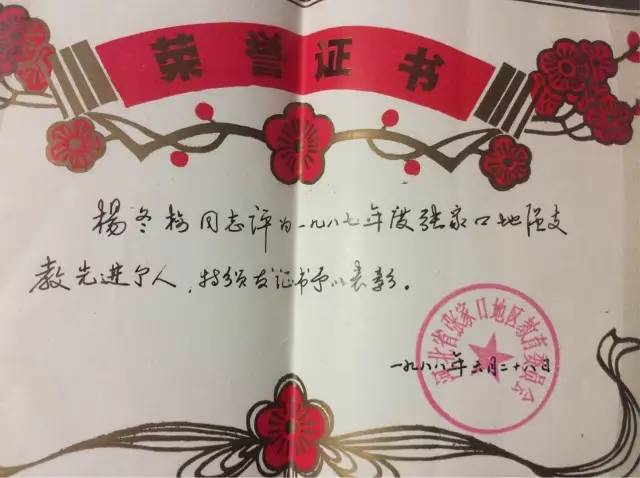 荣誉证书
杨冬梅同志评为一九八七年度张家口地区支
教先进个人，特颁发证书予以表彰。
河北省张家口地区教育委员会
一九八八年六月二十八日